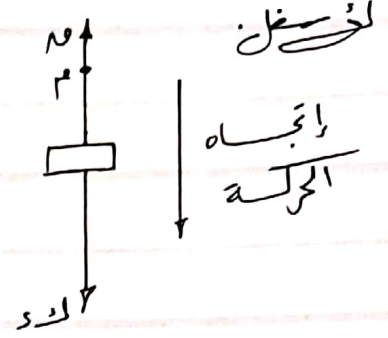 لأسفل.
م
إتجاه
الحركة
ك د